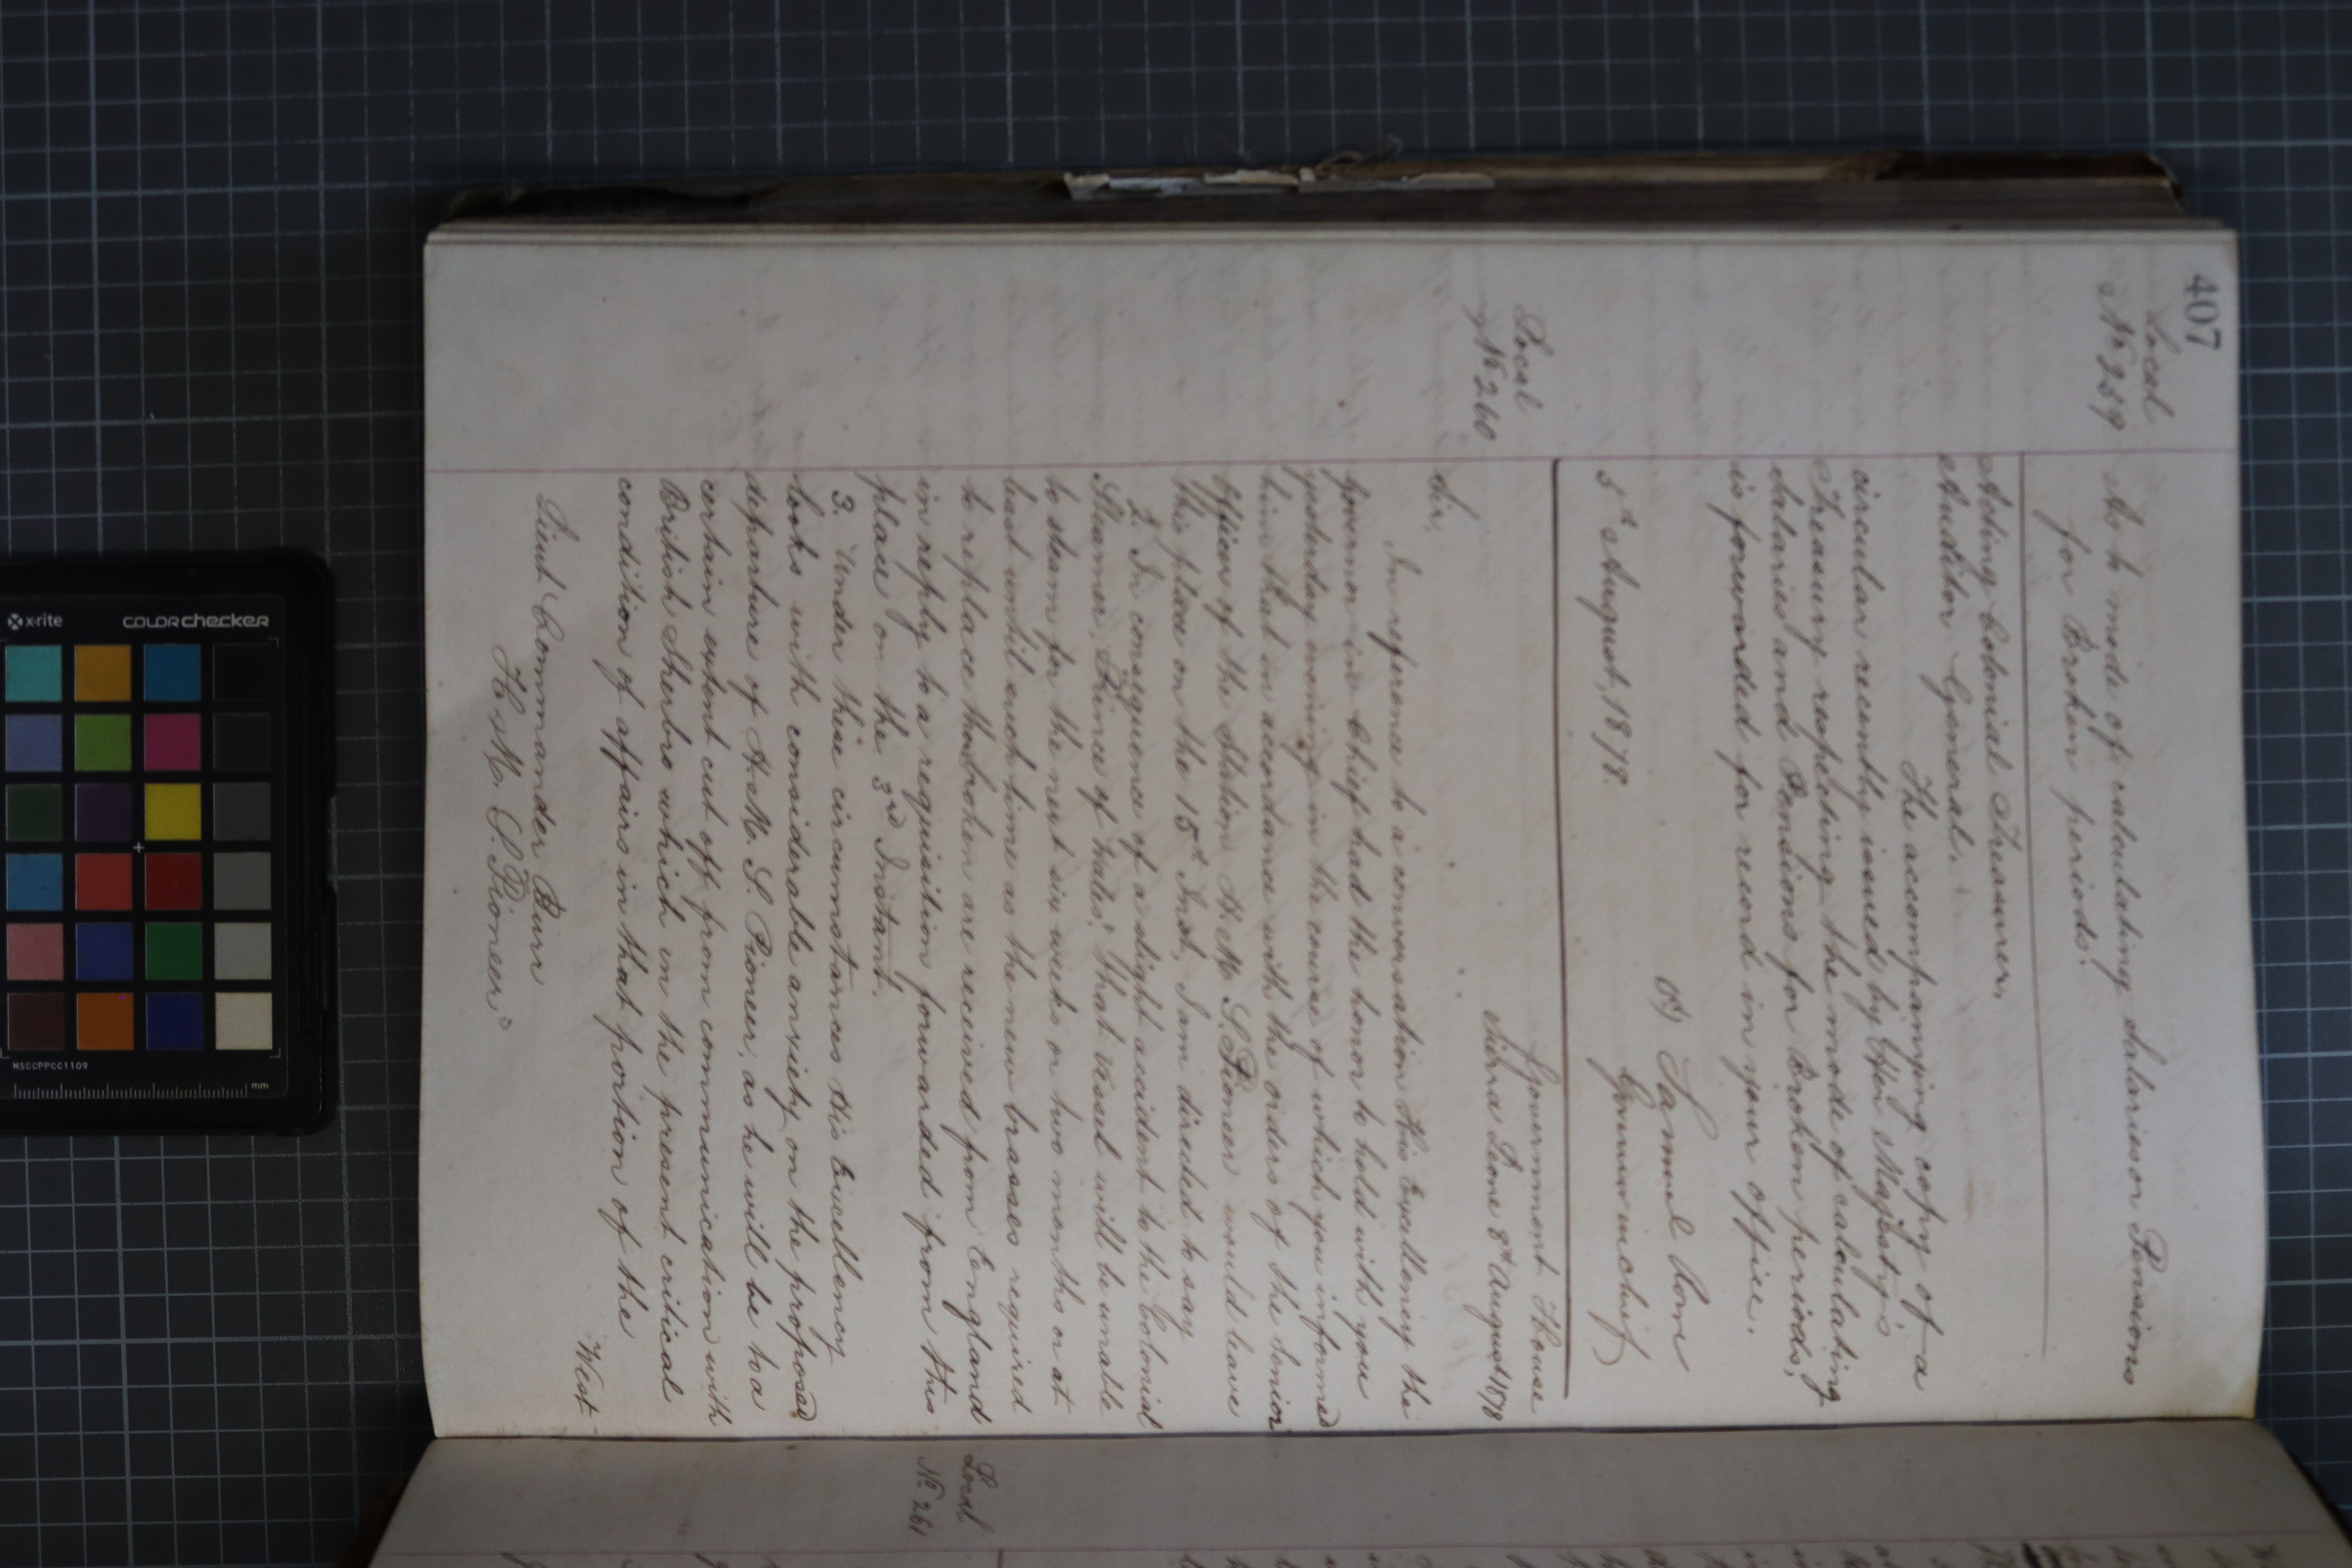 407
Local
No 259
As to mode of calculating Salaries or Pensions
for Broken periods.
Acting Colonial Treasurer,
Auditor General.
The accompanying copy of a
circular recently issued by Her Majesty's
Treasury respecting the mode of calculating
Salaries and Pensions for Broken periods,
is forwarded for record in your office.
Samuel Rowe
Governor in chief
5th August, 1878.
Local
No 260
Government House
Sierra Leone 8th August 1878
Sir,
In reference to a conversation His Excellency the
Governor in Chief had the honor to hold with you
yesterday evening in the course of which you informed
him that in accordance with the orders of the Senior
Officer of the Station H.M.S. Pioneer would leave
this place on the 15th Inst, I am directed to say
2. In consequence of a slight accident to the Colonial
Steamer "Prince of Wales", that vessel will be unable
to steam for the next six weeks or two months or at
least until such time as the new brasses required
to replace those broken are received from England
in reply to a requisition forwarded from this
place on the 3rd Instant.
3. Under these circumstances His Excellency
looks with considerable anxiety on the proposed
departure of H.M.S. Pioneer, as he will be to a
certain extent cut off from communication with
British Sherbro which in the present critical
condition of affairs in that portion of the
West
Lieut Commander Burr
H.M.S. Pioneer,
Local
No 261
x-rite
colorchecker
MSCCPPCC1109
mm